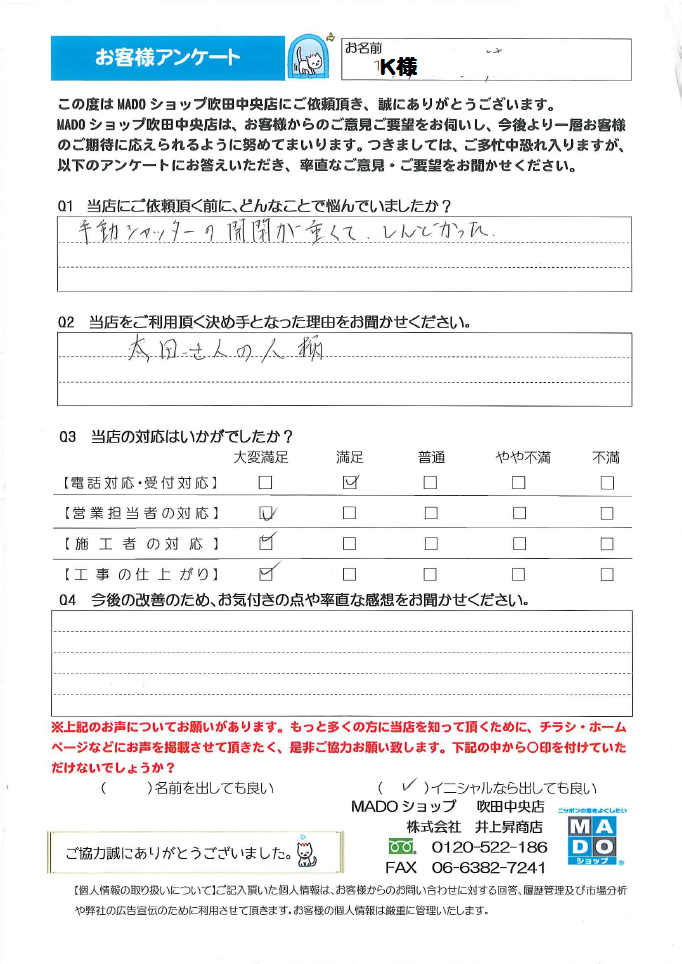 お客様アンケート
お名前
K様
この度はMADOショップ吹田中央店にご依頼頂き、誠にありがとうございます。
MADOショップ吹田中央店は、お客様からのご意見ご要望をお伺いし、今後より一層お客様
のご期待に応えられるように努めてまいります。つきましては、ご多忙中恐れ入りますが、
以下のアンケートにお答えいただき、率直なご意見・ご要望をお聞かせください。
Q1 当店にご依頼頂く前に、どんなことで悩んでいましたか？
手動シャッターの開閉が重くて、しんどかった。
Q2 当店をご利用頂く決め手となった理由をお聞かせください。
太田さんの人柄
Q3 当店の対応はいかがでしたか？
大変満足 満足 普通 やや不満 不満
【電話対応・受付対応】 □ ☑ □ □ □
【営業担当者の対応】 ☑ □ □ □ □
【施工者の対応】 ☑ □ □ □ □
【工事の仕上がり】 ☑ □ □ □ □
Q4 今後の改善のため、お気付きの点や率直な感想をお聞かせください。
※上記のお声についてお願いがあります。もっと多くの方に当店を知って頂くために、チラシ・ホーム
ページなどにお声を掲載させて頂きたく、是非ご協力お願い致します。下記の中から〇印を付けていた
だけないでしょうか？
(　　)名前を出しても良い (✓)イニシャルなら出しても良い
MADOショップ 吹田中央店
株式会社 井上昇商店
0120-522-186
FAX 06-6382-7241
ニッポンの窓をよくしたい
MADO
ショップ
ご協力誠にありがとうございました。
【個人情報の取り扱いについて】ご記入頂いた個人情報は、お客様からのお問い合わせに対する回答、履歴管理及び市場分析
や弊社の広告宣伝のために利用させて頂きます。お客様の個人情報は厳重に管理いたします。